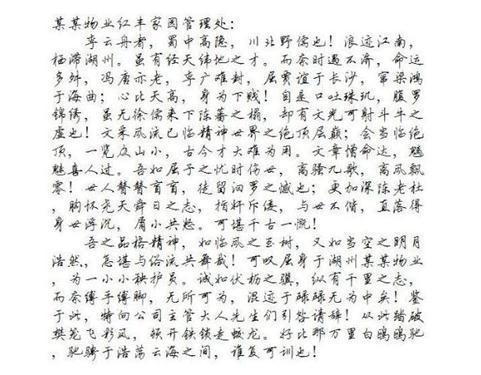 某某物业红丰家园管理处：
李云舟者，蜀中高隐，川北野儒也！浪迹江南，
栖滞湖州。虽有经天纬地之才。而奈时遇不济，命运
多舛，冯唐亦老，李广难封，屈贾谊于长沙，窜梁鸿
于海曲；心比天高，身为下贱！自是口吐珠玑，腹罗
锦绣，虽无徐儒来下陈蕃之榻，却有文光可射斗牛之
虚也！文采风流已临精神世界之绝顶层巅；会当临绝
顶，一览众山小，古今才大难为用。文章憎命达，魑
魅喜人过。吾如屈子之忧时伤世，高骚九歌，高风飘
零！世人聱聱首首，徒留汨罗之憾也；更加深陈老杜
，胸怀尧天舜日之志，指奸斥佞，与世不偕，直落得
身世浮沉，屑小共怒。可堪千古一慨！
吾之品格精神，如临风之玉树，又如当空之明月
浩然，怎堪与俗流共舞哉！可叹屈身于湖州某某物业
，为一小小秩护员。诚如伏枥之骥，纵有千里之志，
而奈缚手缚脚，无所可为，混迹于碌碌无为中矣！鉴
于此，特向公司主管大人先生们引咎请辞！从此踏破
樊笼飞彩凤，顿开铁锁走蛟龙。好比那万里白鸥鸥驰
，驰骋于浩荡云海之间，谁复可训也！